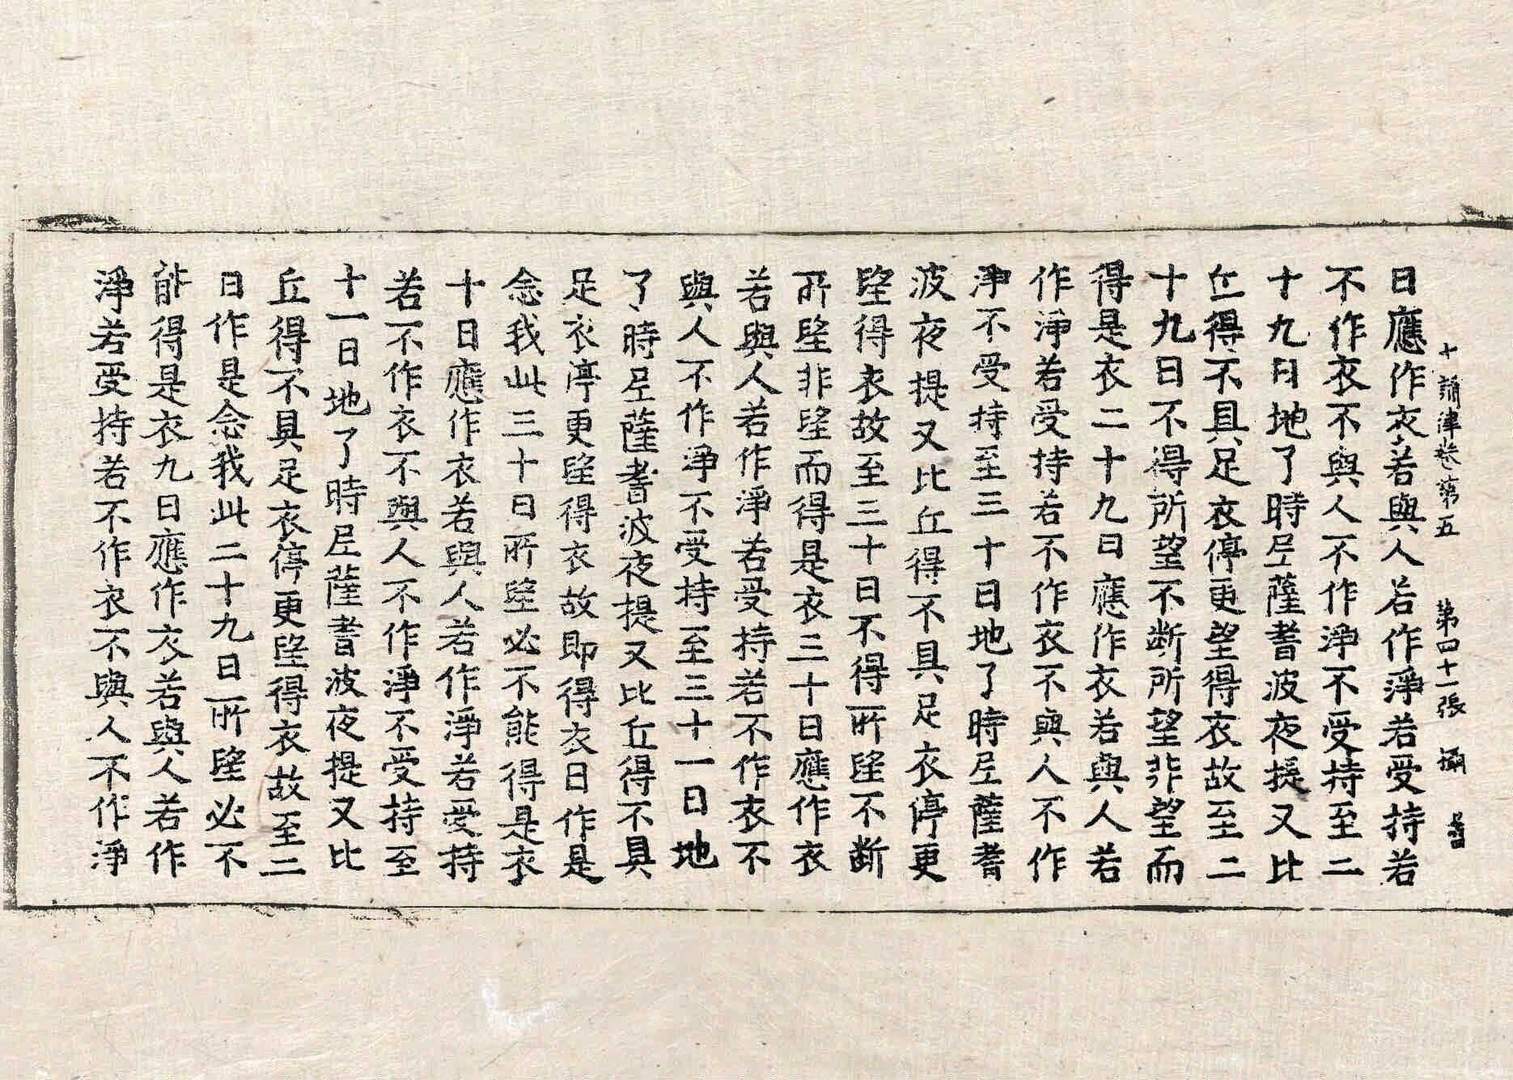 十誦律卷第五 第四十一張 攝
日應作衣若與人若作淨若受持若
不作衣不與人不作淨不受持至二
十九日地了時尼薩耆波夜提又比
丘得不具足衣停更望得衣故至二
十九日不得所望不斷所望非望而
得是衣二十九日應作衣若與人若
作淨若受持若不作衣不與人不作
淨不受持至三十日地了時尼薩耆
波夜提又比丘得不具足衣停更
望得衣故至三十日不得所望不斷
所望非望而得是衣三十日應作衣
若與人若作淨若受持若不作衣不
與人不作淨不受持至三十一日地
了時尼薩耆波夜提又比丘得不具
足衣停更望得衣故即得衣日作是
念我此三十日所望必不能得是衣
十日應作衣若與人若作淨若受持
若不作衣不與人不作淨不受持至
十一日地了時尼薩耆波夜提又比
丘得不具足衣停更望得衣故至二
日作是念我此二十九日所望必不
能得是衣九日應作衣若與人若作
淨若受持若不作衣不與人不作淨